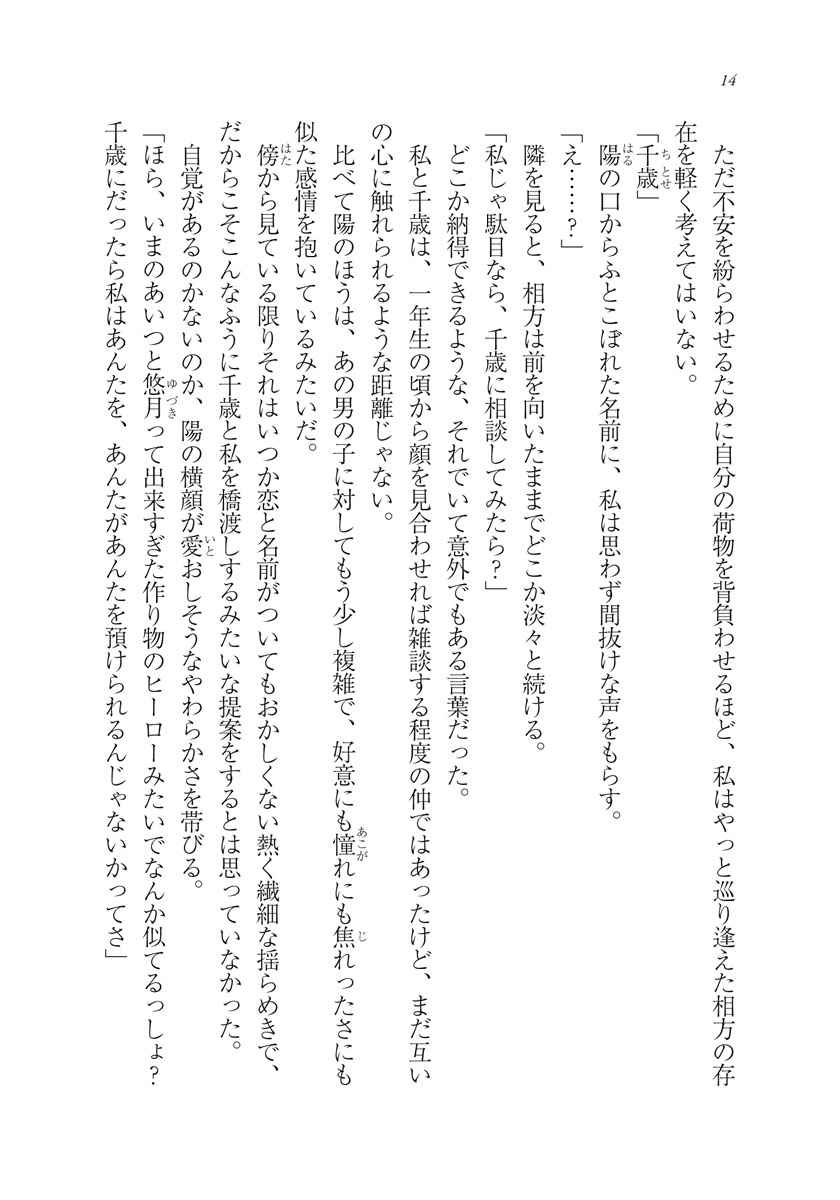 14
　ただ不安を紛らわせるために自分の荷物を背負わせるほど、私はやっと巡り逢えた相方の存
在を軽く考えてはいない。
「千歳」
　陽の口からふとこぼれた名前に、私は思わず間抜けな声をもらす。
「え……？」
　隣を見ると、相方は前を向いたままでどこか淡々と続ける。
「私じゃ駄目なら、千歳に相談してみたら？」
　どこか納得できるような、それでいて意外でもある言葉だった。
　私と千歳は、一年生の頃から顔を見合わせれば雑談する程度の仲ではあったけど、まだ互い
の心に触れられるような距離じゃない。
　比べて陽のほうは、あの男の子に対してもう少し複雑で、好意にも憧れにも焦れったさにも
似た感情を抱いているみたいだ。
　傍から見ている限りそれはいつか恋と名前がついてもおかしくない熱く繊細な揺らめきで、
だからこそこんなふうに千歳と私を橋渡しするみたいな提案をするとは思っていなかった。
　自覚があるのかないのか、陽の横顔が愛おしそうなやわらかさを帯びる。
「ほら、いまのあいつと悠月って出来すぎた作り物のヒーローみたいでなんか似てるっしょ？
千歳にだったら私はあんたを、あんたがあんたを預けられるんじゃないかってさ」